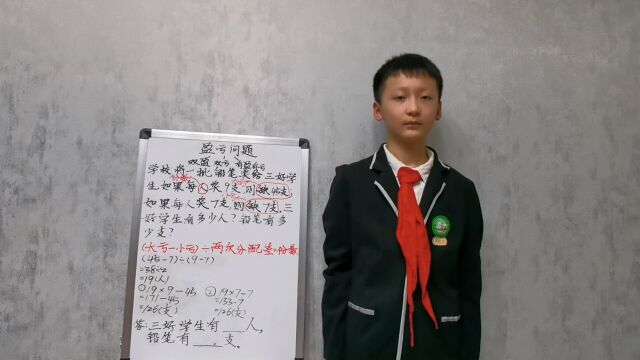 盈亏问题
双盈 双亏 有盈有亏
学校将一批铅笔奖给三好学
生如果每人奖9支,则缺45支
如果每人奖7支,则缺7支,三
好学生有多少人?铅笔有多
少支?
(大亏-小亏)÷两次分配差=份数
(45-7)÷(9-7)
=38÷2
=19(人)
①19×9-45 ②19×7-7
=171-45 =133-7
=126(支) =126(支)
答:三好学生有___人,
铅笔有___支。